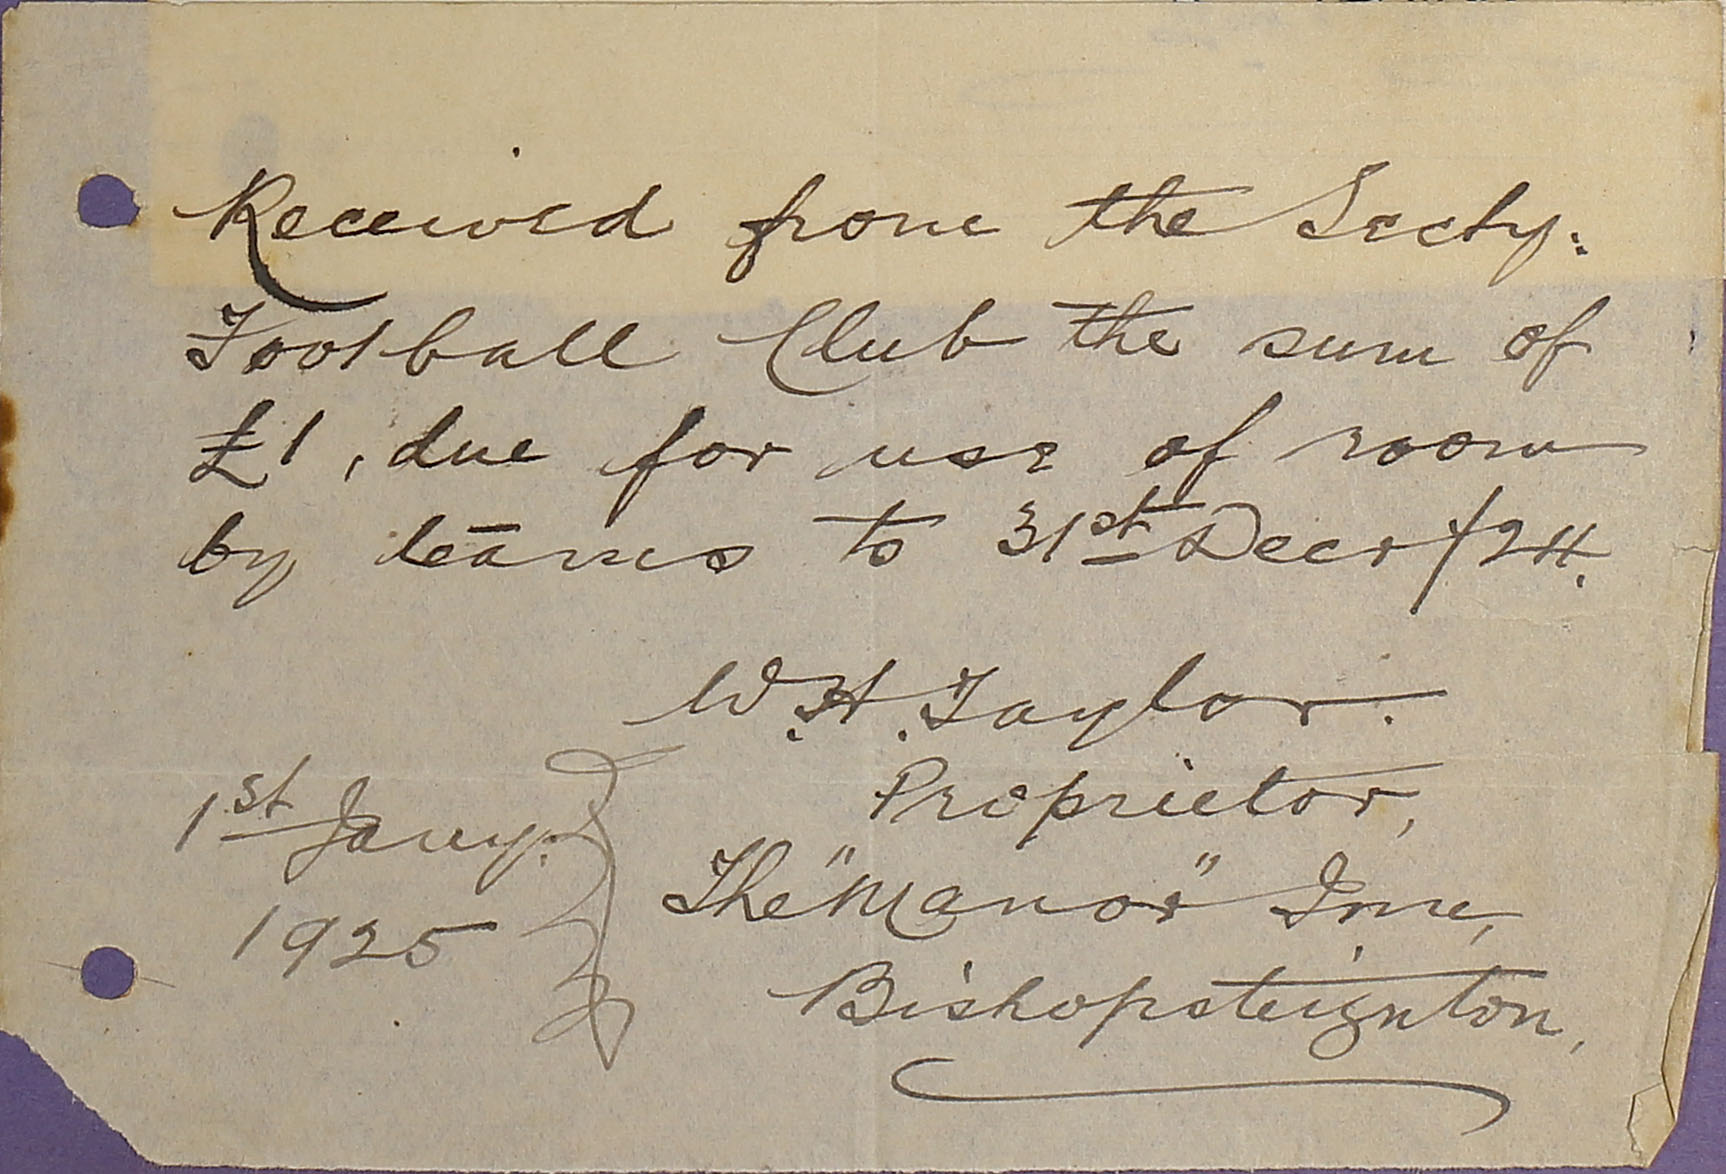 Received from the Secty:
Football Club the sum of
£1, due for use of room
by teams to 31st Decr /24.
W. H. Taylor.
Proprietor,
The "Manor" Inn,
Bishopsteignton,
1st Jany.
1925